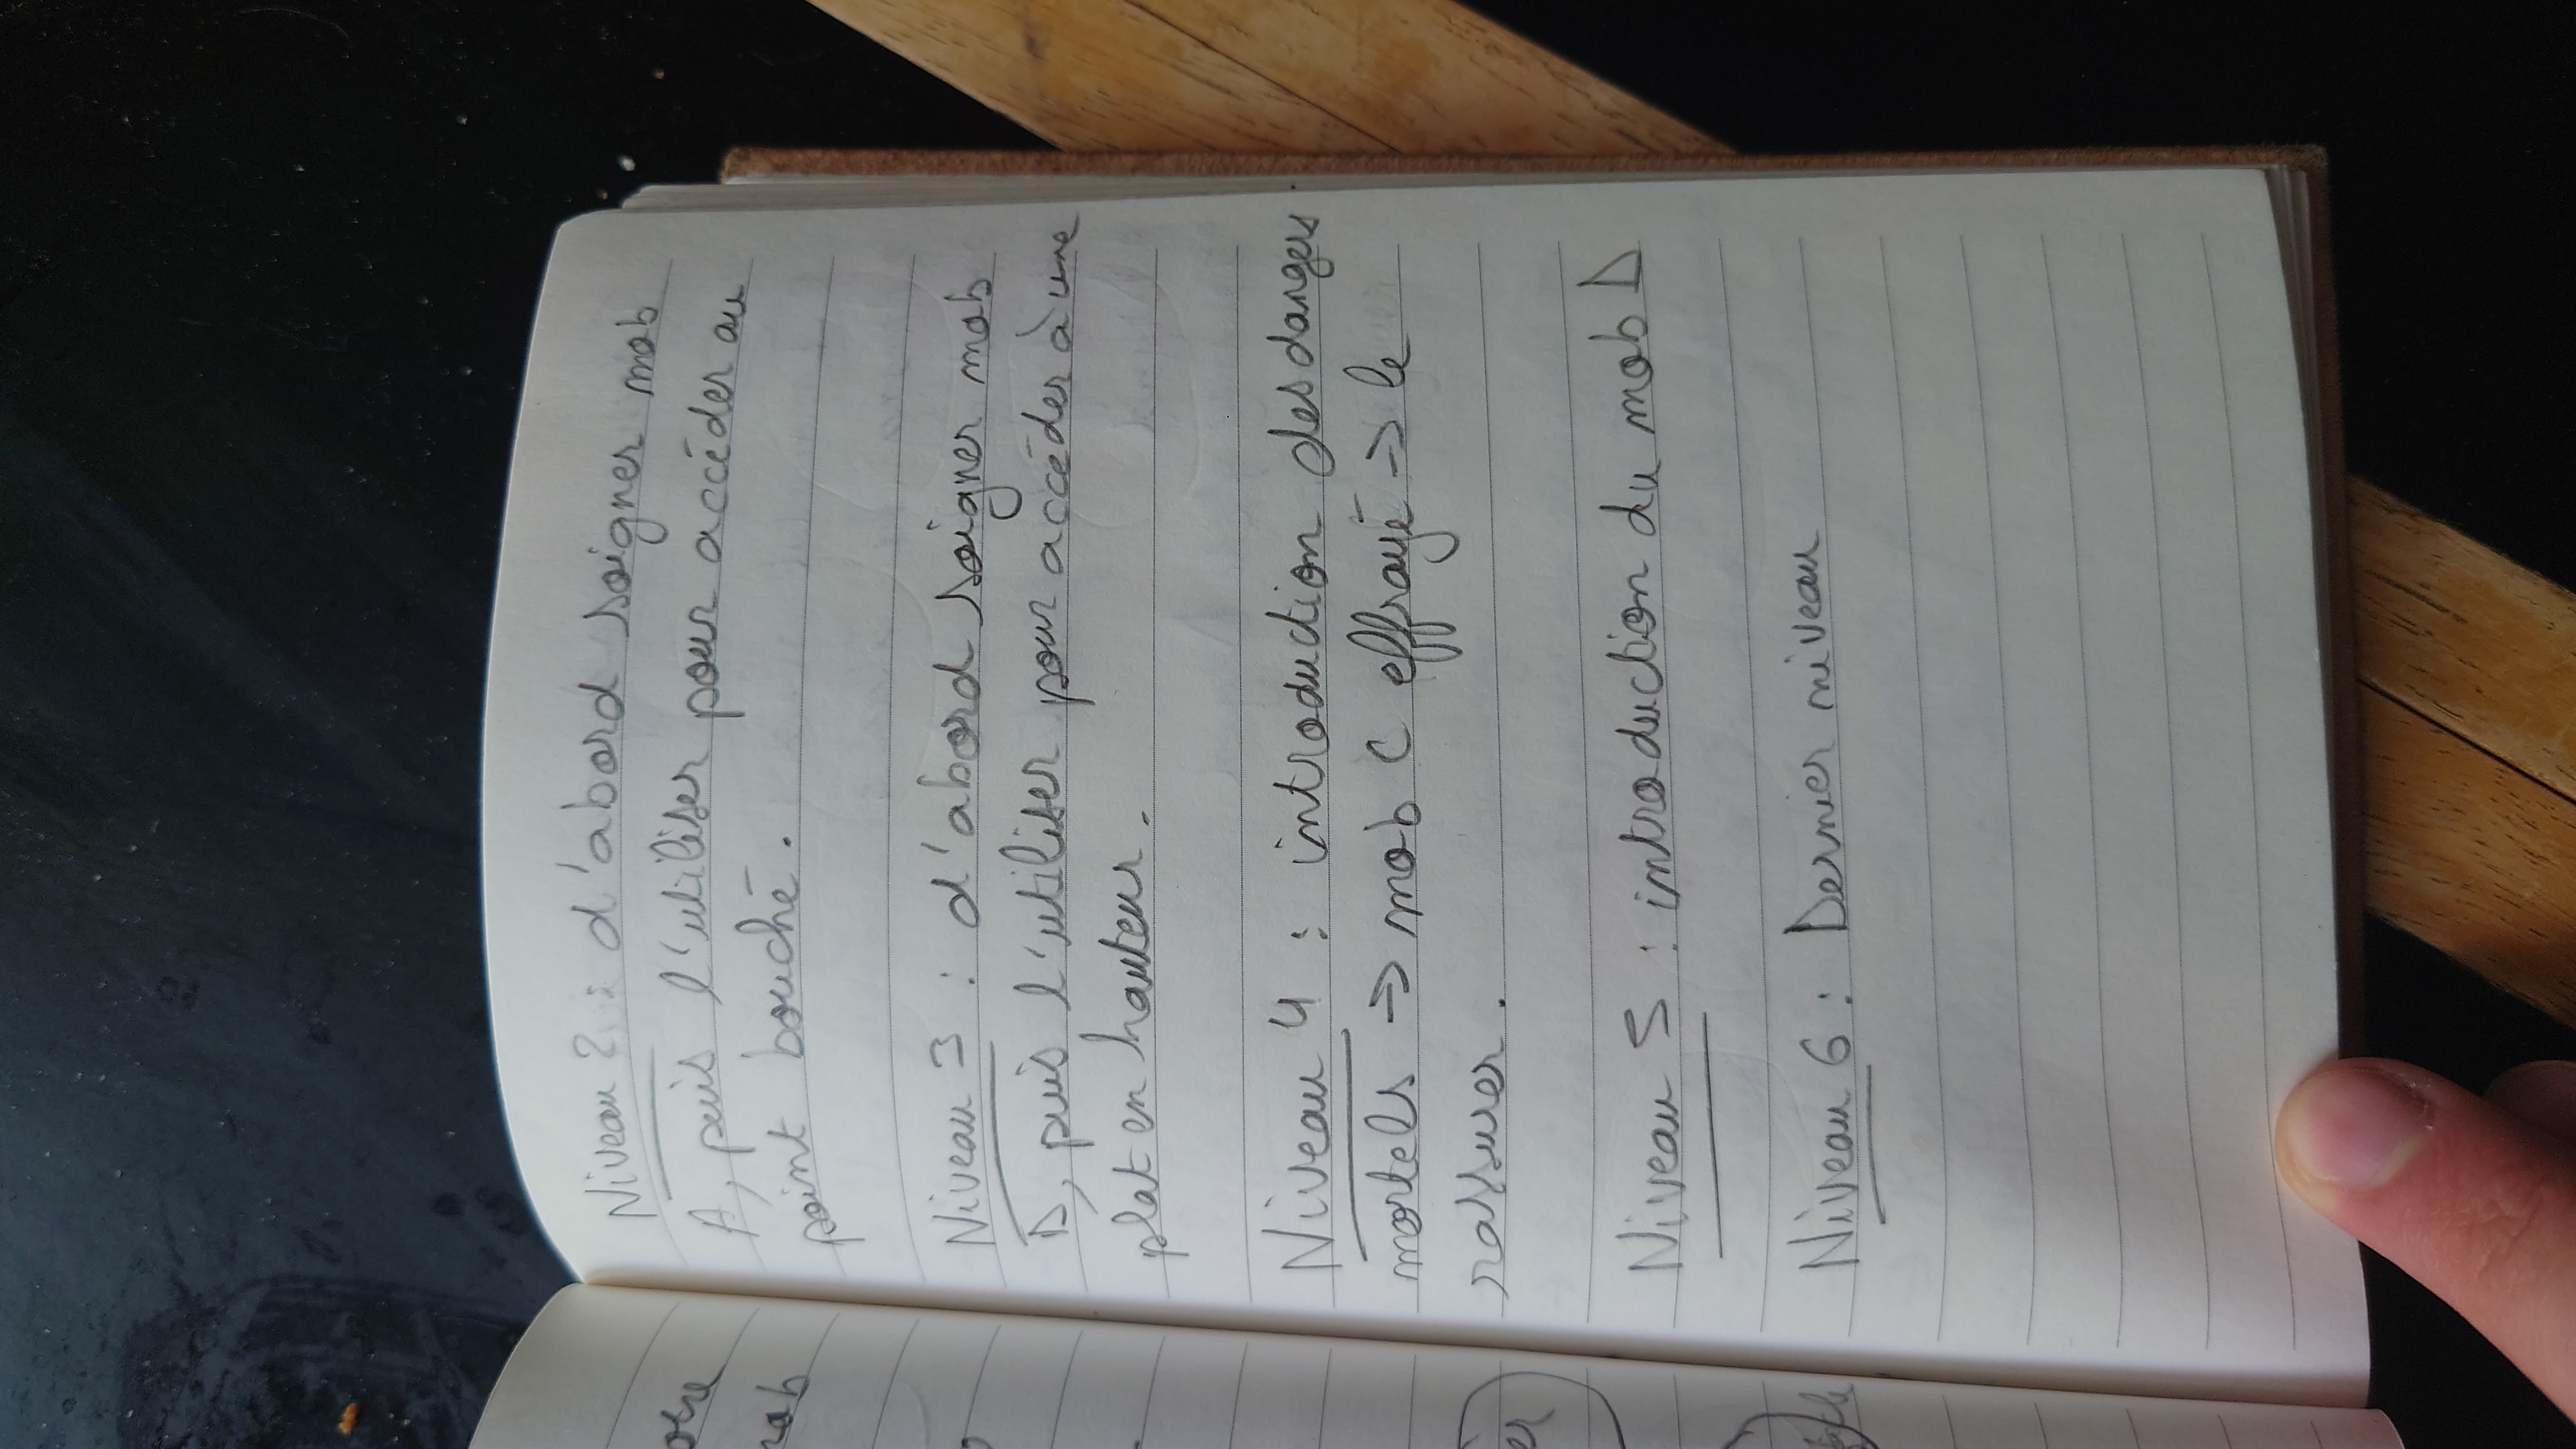 otre
mob
er
Niveau 2 : d'abord soigner mob
A, puis l'utiliser pour accéder au
point bouché.
Niveau 3 : d'abord soigner mob
D, puis l'utiliser pour accéder à une
plat en hauteur.
Niveau 4 : introduction des dangers
mortels => mob C effrayé => le
rassurer.
Niveau 5 : introduction du mob D
Niveau 6 : Dernier niveau